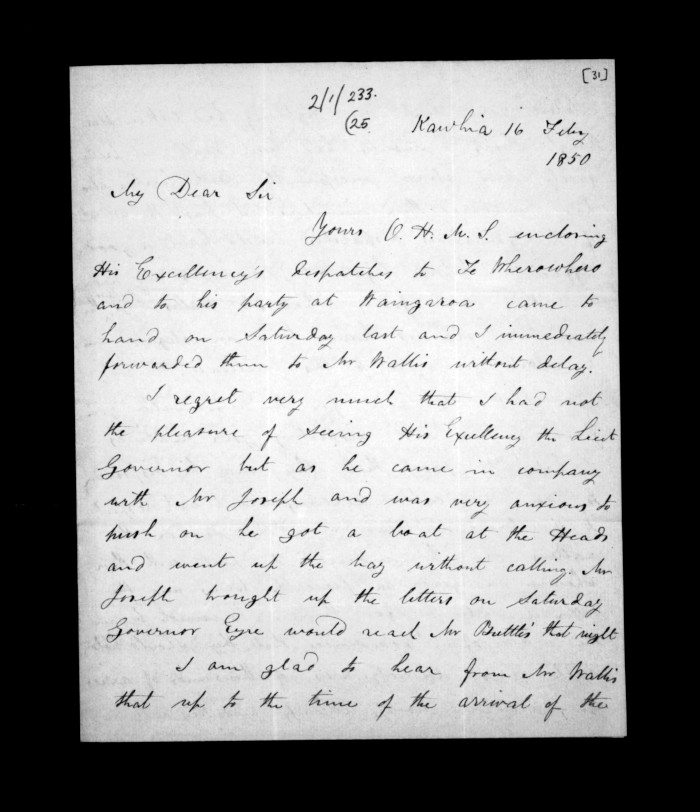 [31]
2/1/233.
(25.
Kawhia 16 Feby
1850
My Dear Sir
Yours O. H. M. S. enclosing
His Excellency's despatches to Te Wherowhero
and to his party at Waingaroa came to
hand on Saturday last and I immediately
forwarded them to Mr Wallis without delay.
I regret very much that I had not
the pleasure of seeing His Excellency the Lieut
Governor but as he came in company
with Mr Joseph and was very anxious to
push on he got a boat at the Heads
and went up the bay without calling. Mr
Joseph brought up the letters on Saturday
Governor Eyre would reach Mr Buttle's that night
I am glad to hear from Mr Wallis
that up to the time of the arrival of the